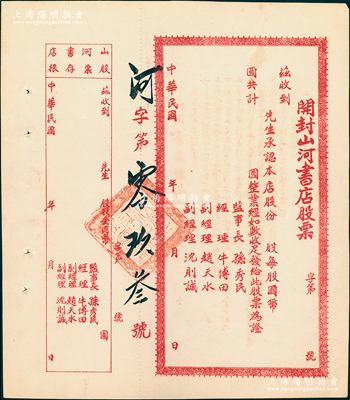 開封山河書店股票
字第 號
茲收到
先生承認本店股份 股每股國幣
圓整業經如數收足發給此股票為證
圓共計
監事長 孫秀民
經理 牛博田
副經理 趙天水
副經理 沈則誠
中華民國 年 月 日
河字第零玖叁號
茲收到
先生
圓
監事長 孫秀民
經理 牛博田
副經理 趙天水
副經理 沈則誠
中華民國 年 月 日
山河書店
股票存根
上海陽明拍賣